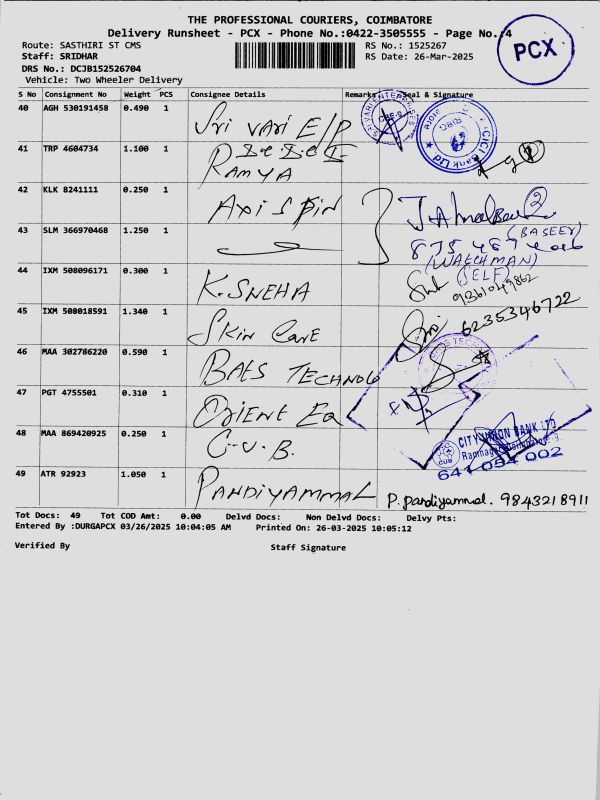 THE PROFESSIONAL COURIERS, COIMBATORE
Delivery Runsheet - PCX - Phone No.:0422-3505555 - Page No.:4
PCX
Route: SASTHIRI ST CMS
RS No.: 1525267
Staff: SRIDHAR
RS Date: 26-Mar-2025
DRS No.: DCJB152526704
Vehicle: Two Wheeler Delivery
S No Consignment No Weight PCS Consignee Details Remarks Seal & Signature
40 AGH 530191458 0.490 1 Sri VARI E/P
41 TRP 4604734 1.100 1
RAMYA
42 KLK 8241111 0.250 1 AXIS PIN
(BASEER)
43 SLM 366970468 1.250 1
(WATCHMAN)
44 IXM 508096171 0.300 1 K. SNEHA (SELF)
9361049862
45 IXM 508018591 1.340 1 SKIN CARE 6235346722
46 MAA 302786220 0.590 1 BAES TECHNOLO
47 PGT 4755501 0.310 1 ORIENT EQ
48 MAA 869420925 0.250 1 C.U.B. CITY UNION BANK LTD
641 054 002
49 ATR 92923 1.050 1 PANDIYAMMAL P. pandiyammal. 9843218911
Tot Docs: 49 Tot COD Amt: 0.00 Delvd Docs: Non Delvd Docs: Delvy Pts:
Entered By :DURGAPCX 03/26/2025 10:04:05 AM Printed On: 26-03-2025 10:05:12
Verified By Staff Signature